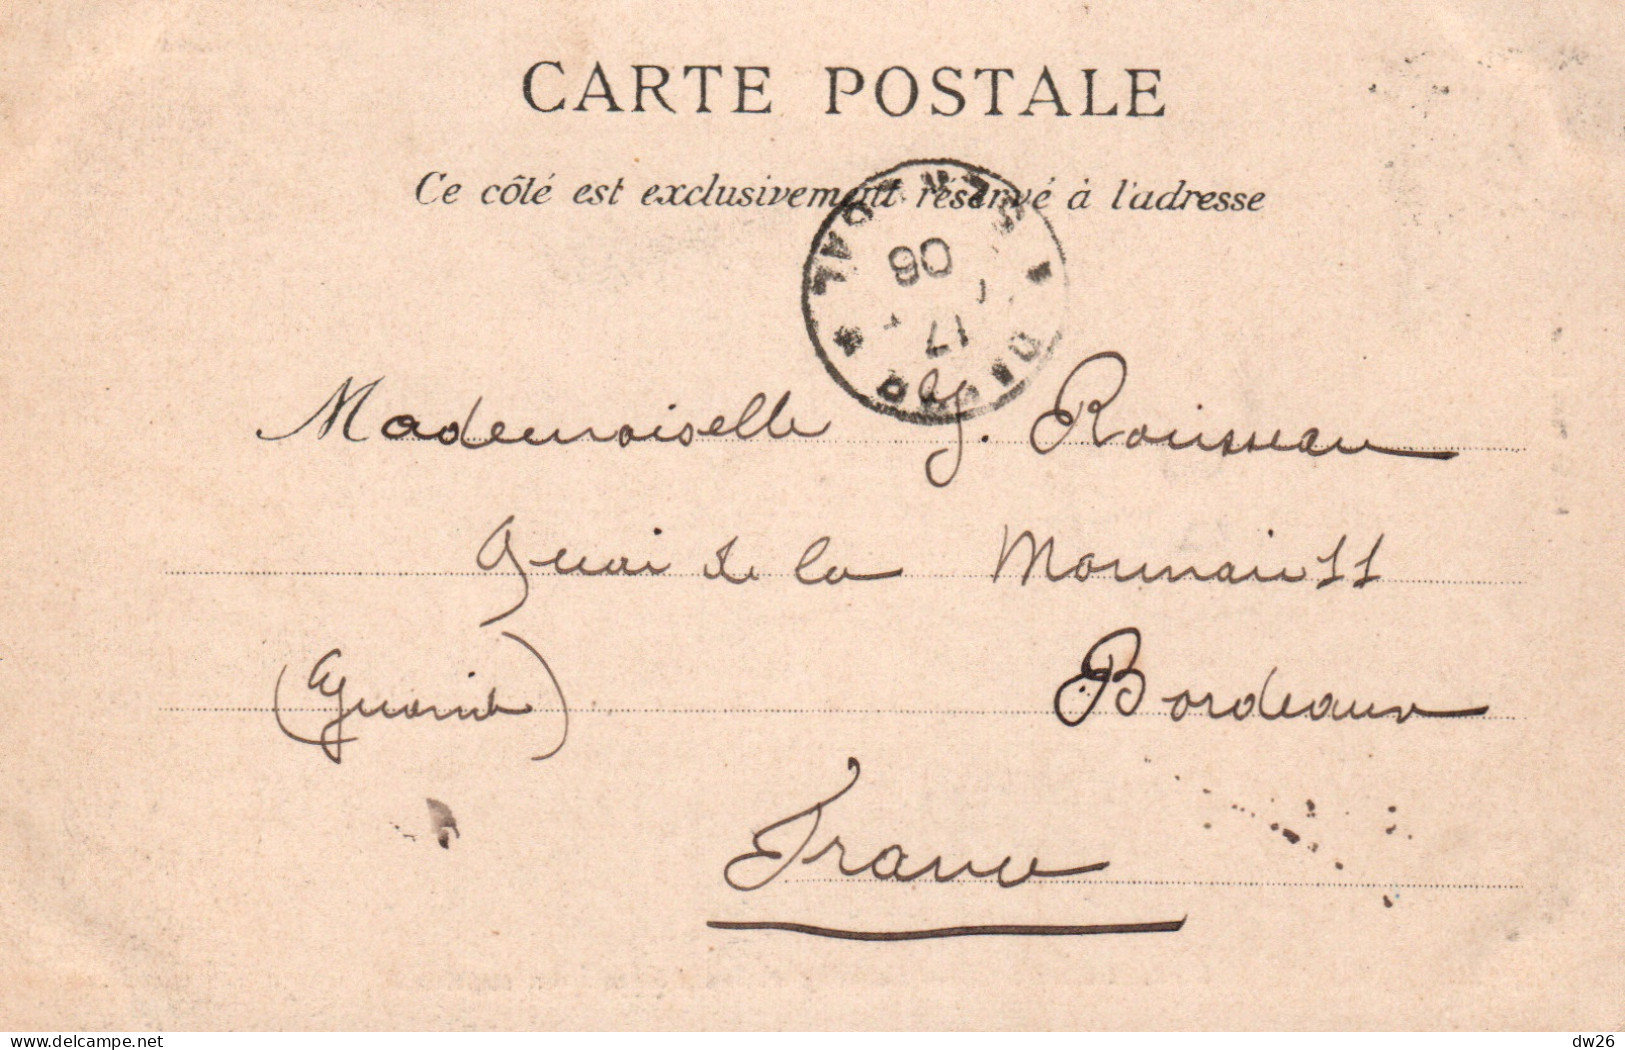 CARTE POSTALE
Ce côté est exclusivement réservé à l'adresse
17
06
Mademoiselle J. Rousseau
Quai de la Monnaie 11
(Gironde) Bordeaux
France
delcampe.net
dw26